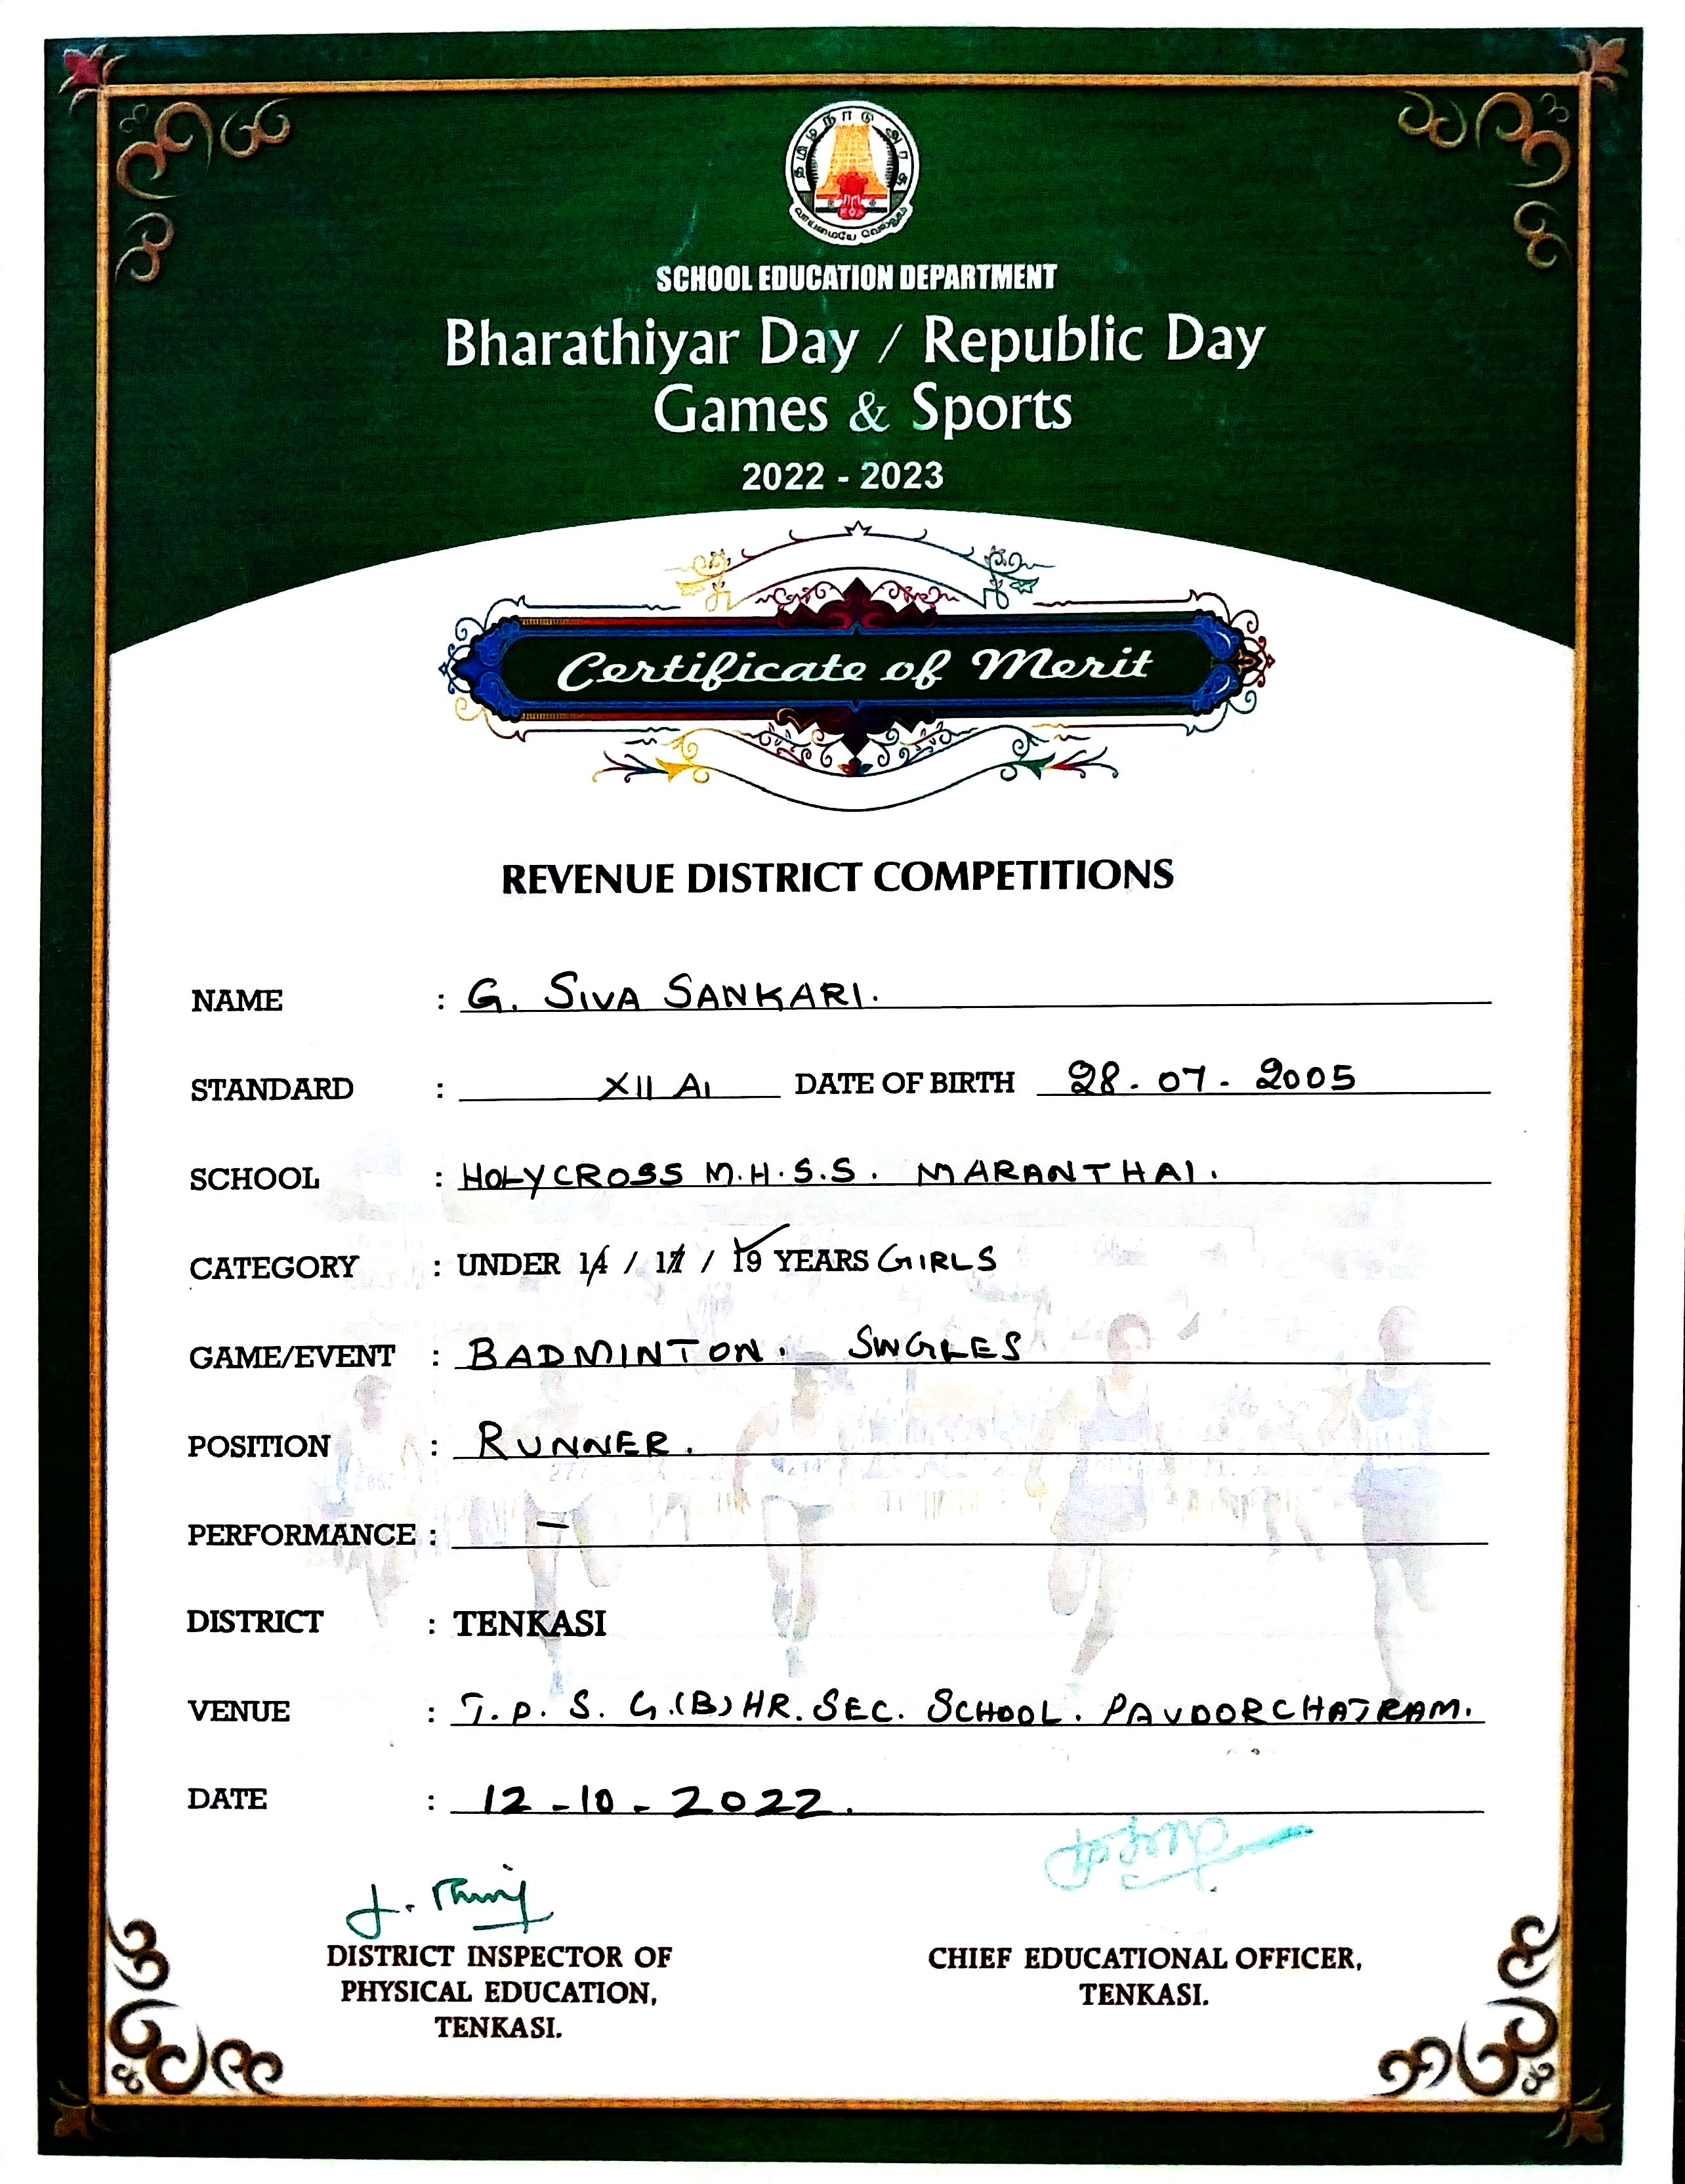 தமிழ்நாடு அரசு
வாய்மையே வெல்லும்
SCHOOL EDUCATION DEPARTMENT
Bharathiyar Day / Republic Day
Games & Sports
2022 - 2023
Certificate of Merit
REVENUE DISTRICT COMPETITIONS
NAME : G. SIVA SANKARI.
STANDARD : XII A1 DATE OF BIRTH 28.07.2005
SCHOOL : HOLYCROSS M.H.S.S. MARANTHAI.
CATEGORY : UNDER 14 / 17 / 19 YEARS GIRLS
GAME/EVENT : BADMINTON. SINGLES
POSITION : RUNNER.
PERFORMANCE : –
DISTRICT : TENKASI
VENUE : T.P.S.G.(B) HR. SEC. SCHOOL. PAVOORCHATRAM.
DATE : 12-10-2022.
DISTRICT INSPECTOR OF CHIEF EDUCATIONAL OFFICER,
PHYSICAL EDUCATION, TENKASI.
TENKASI.